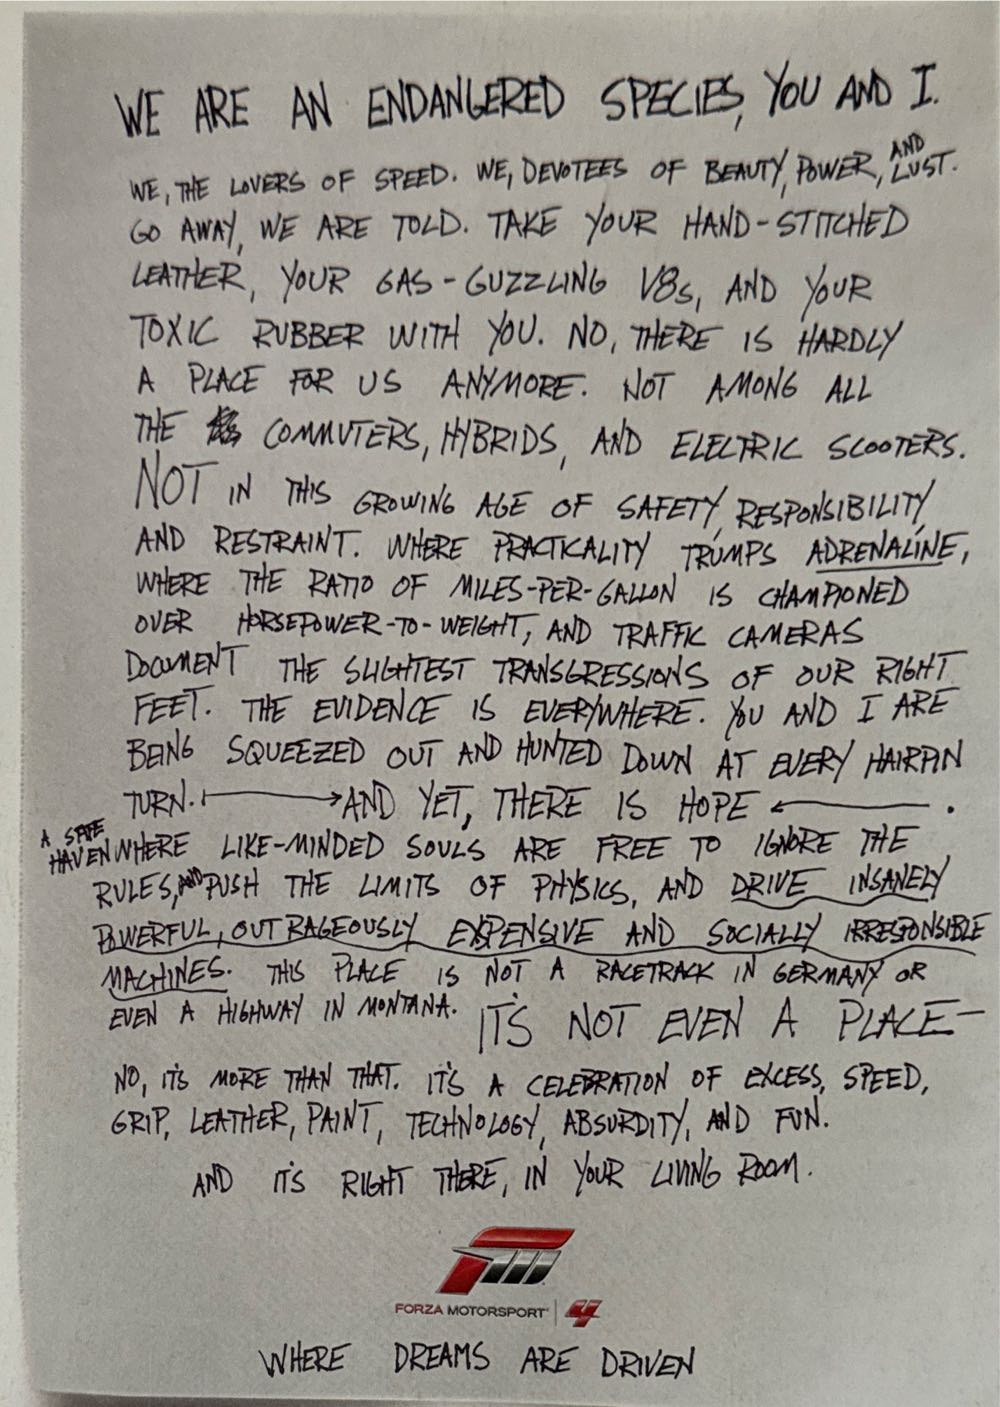 WE ARE AN ENDANGERED SPECIES, YOU AND I.
WE, THE LOVERS OF SPEED. WE, DEVOTEES OF BEAUTY, POWER, AND LUST.
GO AWAY, WE ARE TOLD. TAKE YOUR HAND-STITCHED
LEATHER, YOUR GAS-GUZZLING V8s, AND YOUR
TOXIC RUBBER WITH YOU. NO, THERE IS HARDLY
A PLACE FOR US ANYMORE. NOT AMONG ALL
THE COMMUTERS, HYBRIDS, AND ELECTRIC SCOOTERS.
NOT IN THIS GROWING AGE OF SAFETY, RESPONSIBILITY,
AND RESTRAINT. WHERE PRACTICALITY TRUMPS ADRENALINE,
WHERE THE RATIO OF MILES-PER-GALLON IS CHAMPIONED
OVER HORSEPOWER-TO-WEIGHT, AND TRAFFIC CAMERAS
DOCUMENT THE SLIGHTEST TRANSGRESSIONS OF OUR RIGHT
FEET. THE EVIDENCE IS EVERYWHERE. YOU AND I ARE
BEING SQUEEZED OUT AND HUNTED DOWN AT EVERY HAIRPIN
TURN. AND YET, THERE IS HOPE.
A SAFE HAVEN WHERE LIKE-MINDED SOULS ARE FREE TO IGNORE THE
RULES, AND PUSH THE LIMITS OF PHYSICS, AND DRIVE INSANELY
POWERFUL, OUTRAGEOUSLY EXPENSIVE AND SOCIALLY IRRESPONSIBLE
MACHINES. THIS PLACE IS NOT A RACETRACK IN GERMANY OR
EVEN A HIGHWAY IN MONTANA. IT'S NOT EVEN A PLACE—
NO, IT'S MORE THAN THAT. IT'S A CELEBRATION OF EXCESS, SPEED,
GRIP, LEATHER, PAINT, TECHNOLOGY, ABSURDITY, AND FUN.
AND IT'S RIGHT THERE, IN YOUR LIVING ROOM.
FORZA MOTORSPORT 4
WHERE DREAMS ARE DRIVEN